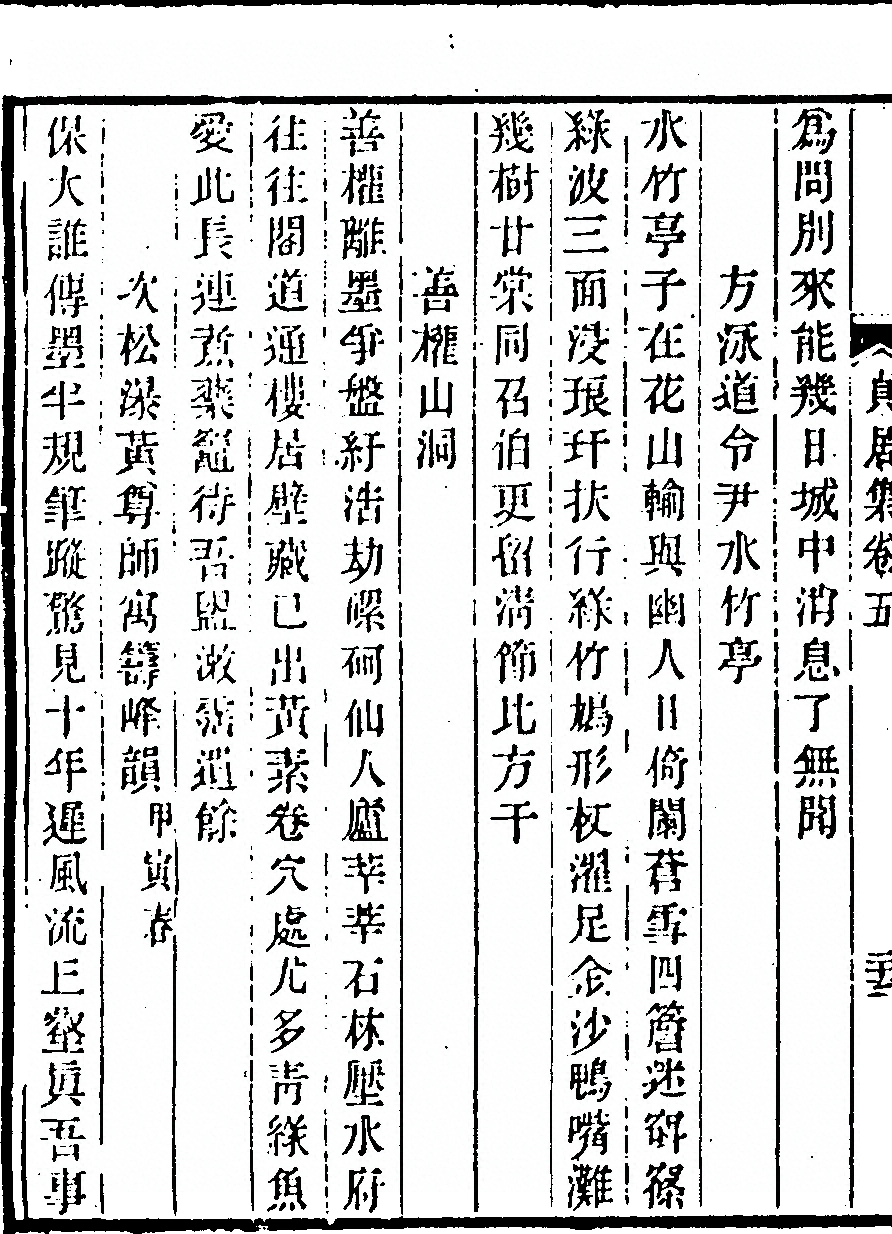 貞居集卷五
爲問別來能幾日城中消息了無聞
方泳道令尹水竹亭
水竹亭子在花山輸與幽人日倚闌蒼雪四簷迷碧篠
綠波三面浸琅玕扶行綠竹鳩形杖濯足金沙鴨嘴灘
幾樹甘棠同召伯更留淸節比方干
善權山洞
善權離墨爭盤紆浩劫磥砢仙人廬莘莘石林壓水府
往往閣道通樓居壁藏已出黃素卷穴處尤多靑綠魚
愛此長連煮藥竈待吾盥漱茹遺餘
次松瀑黃尊師寓籌峰韻甲寅春
保大誰傳墨半規筆蹤驚見十年遲風流丘壑眞吾事